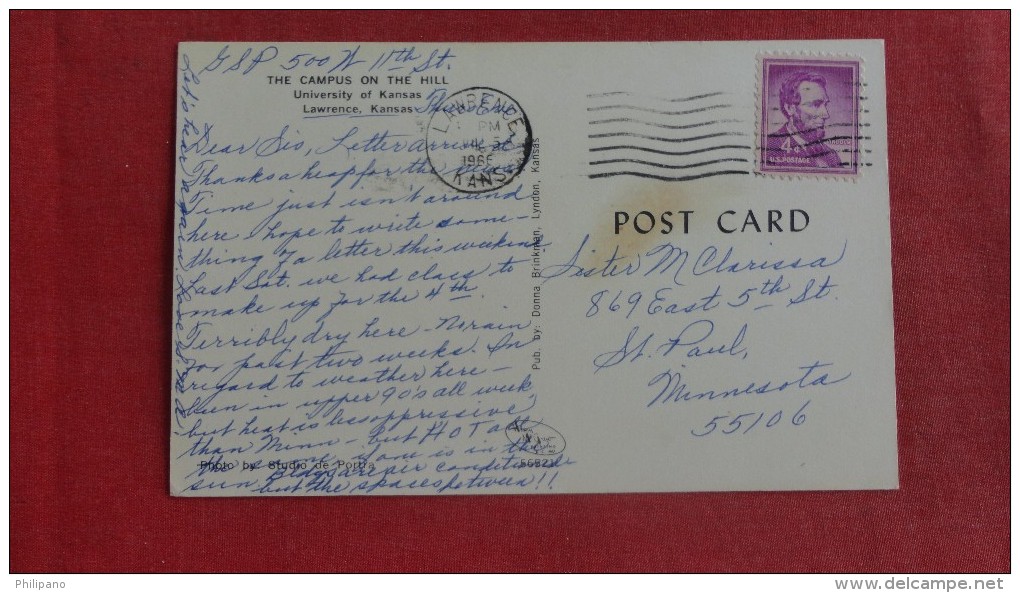 GSP 500 W 11th St.
THE CAMPUS ON THE HILL
University of Kansas
Lawrence, Kansas
Thurs. Eve
Dear Sis, Letter arrived
Thanks a heap for the
Time just isn't around
here I hope to write some-
thing of a letter this weekend
Last Sat. we had class to
make up for the 4th.
Terribly dry here - No rain
for past two weeks. In
regard to weather here -
been in upper 90's all week,
but heat is less oppressive
than Minn - but HOT out
the same if one is in the
sun Bldgs are air conditioned
but the spaces between!!
Photo by Studio de Portra
Lots love
LAWRENCE
PM
KANS
Pub. by: Donna Brinkman, Lyndon, Kansas
4¢
U.S. POSTAGE
POST CARD
Sister M Clarissa
869 East 5th St.
St. Paul,
Minnesota
55106
Philipano
www.delcampe.net